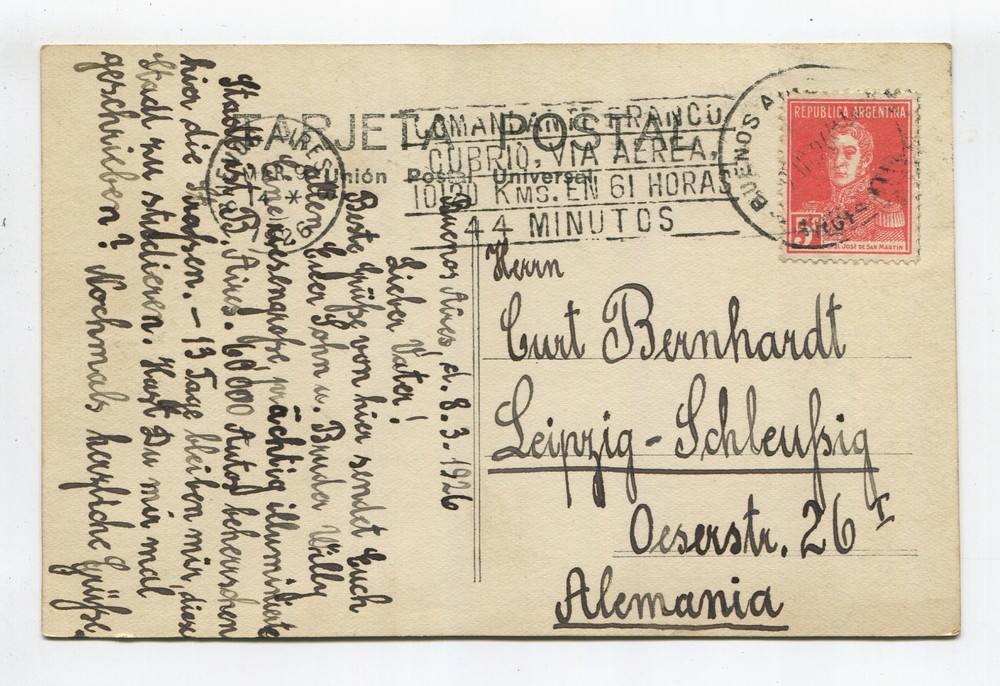 TARJETA POSTAL
Unión Postal Universal
COMANDANTE FRANCO
CUBRIÓ, VIA AEREA,
KMS. EN 61 HORAS
44 MINUTOS
AIRES
MAR 9
14 *
26
BUENOS
REPUBLICA ARGENTINA
5
JOSÉ DE SAN MARTIN
Herrn
Curt Bernhardt
Leipzig-Schleußig
Oeserstr. 26 I
Alemania
Buenos Aires, d. 8.3.1926
Lieber Vater!
Beste Grüße von hier sendet Euch
allen Euer Sohn u. Bruder Willy
Eine riesengroße, prächtig illuminierte
Stadt ist B. Aires. 60000 Autos beherrschen
hier die Straßen. – 13 Tage bleiben wir, diese
Stadt zu studieren. Hast Du mir mal
geschrieben? Nochmals herzliche Grüße.